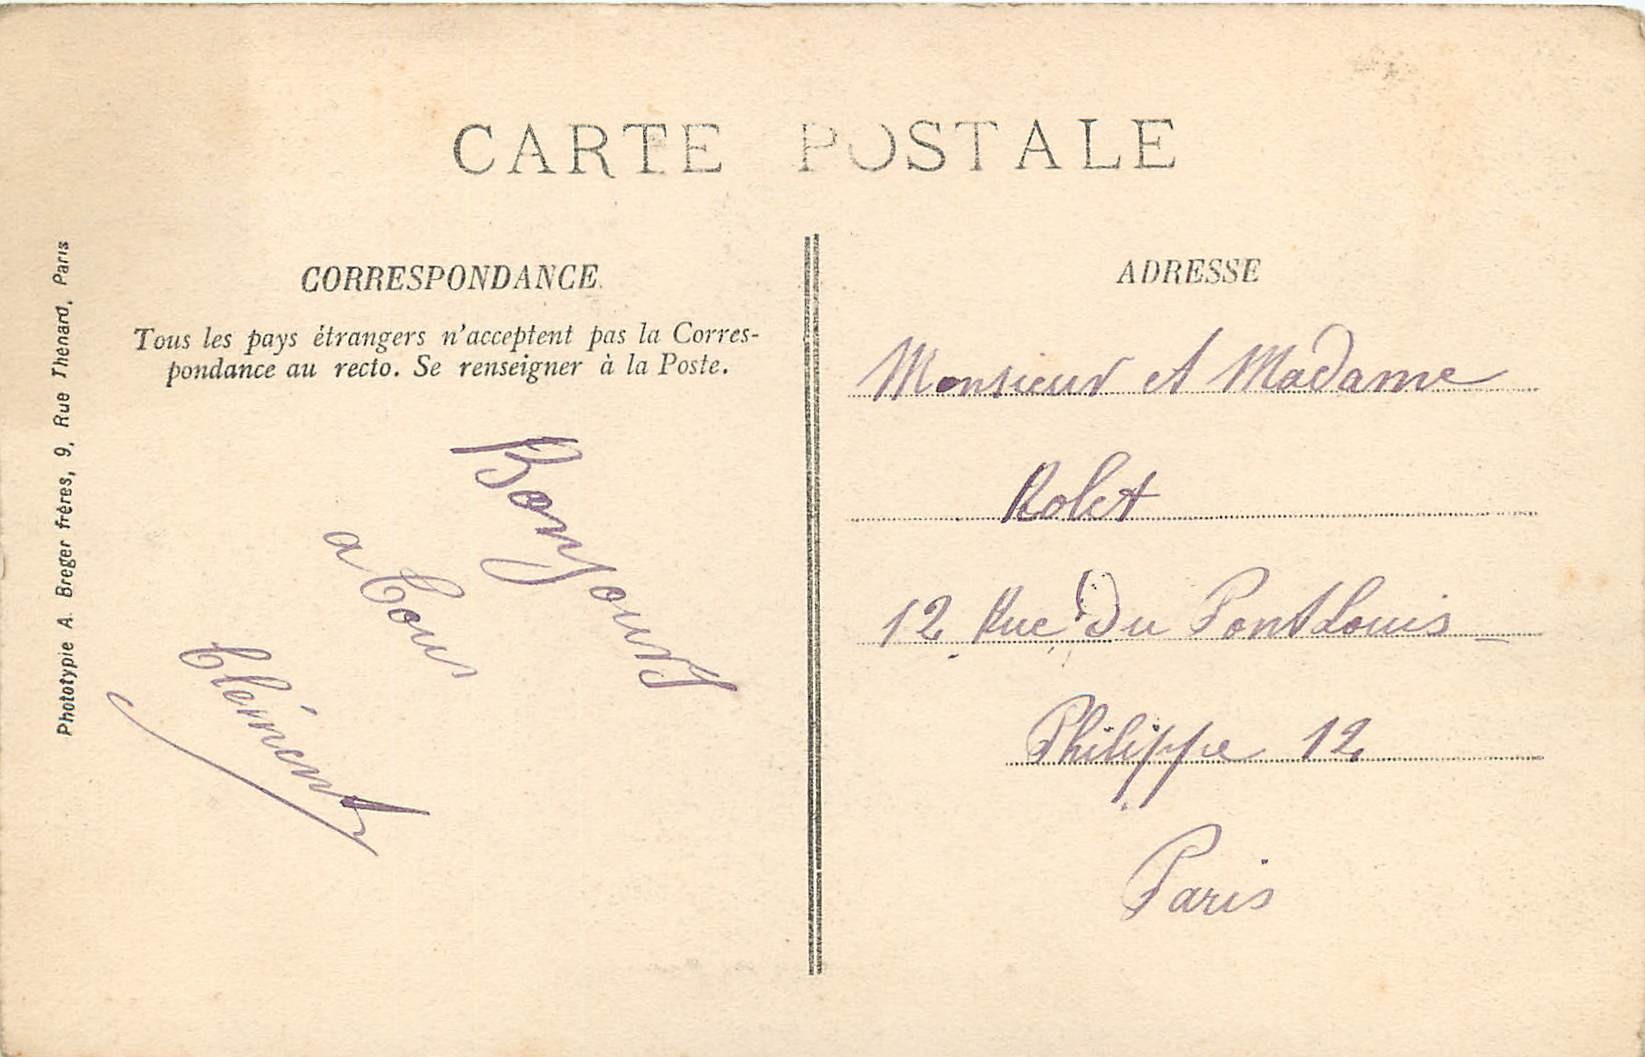 CARTE POSTALE
CORRESPONDANCE
Tous les pays étrangers n'acceptent pas la Corres-
pondance au recto. Se renseigner à la Poste.
Bonjours
a tous
Clément
ADRESSE
Monsieur et Madame
Rolet
12 Rue Du Pont Louis
Philippe 12
Paris
Phototypie A. Breger frères, 9, Rue Thénard, Paris